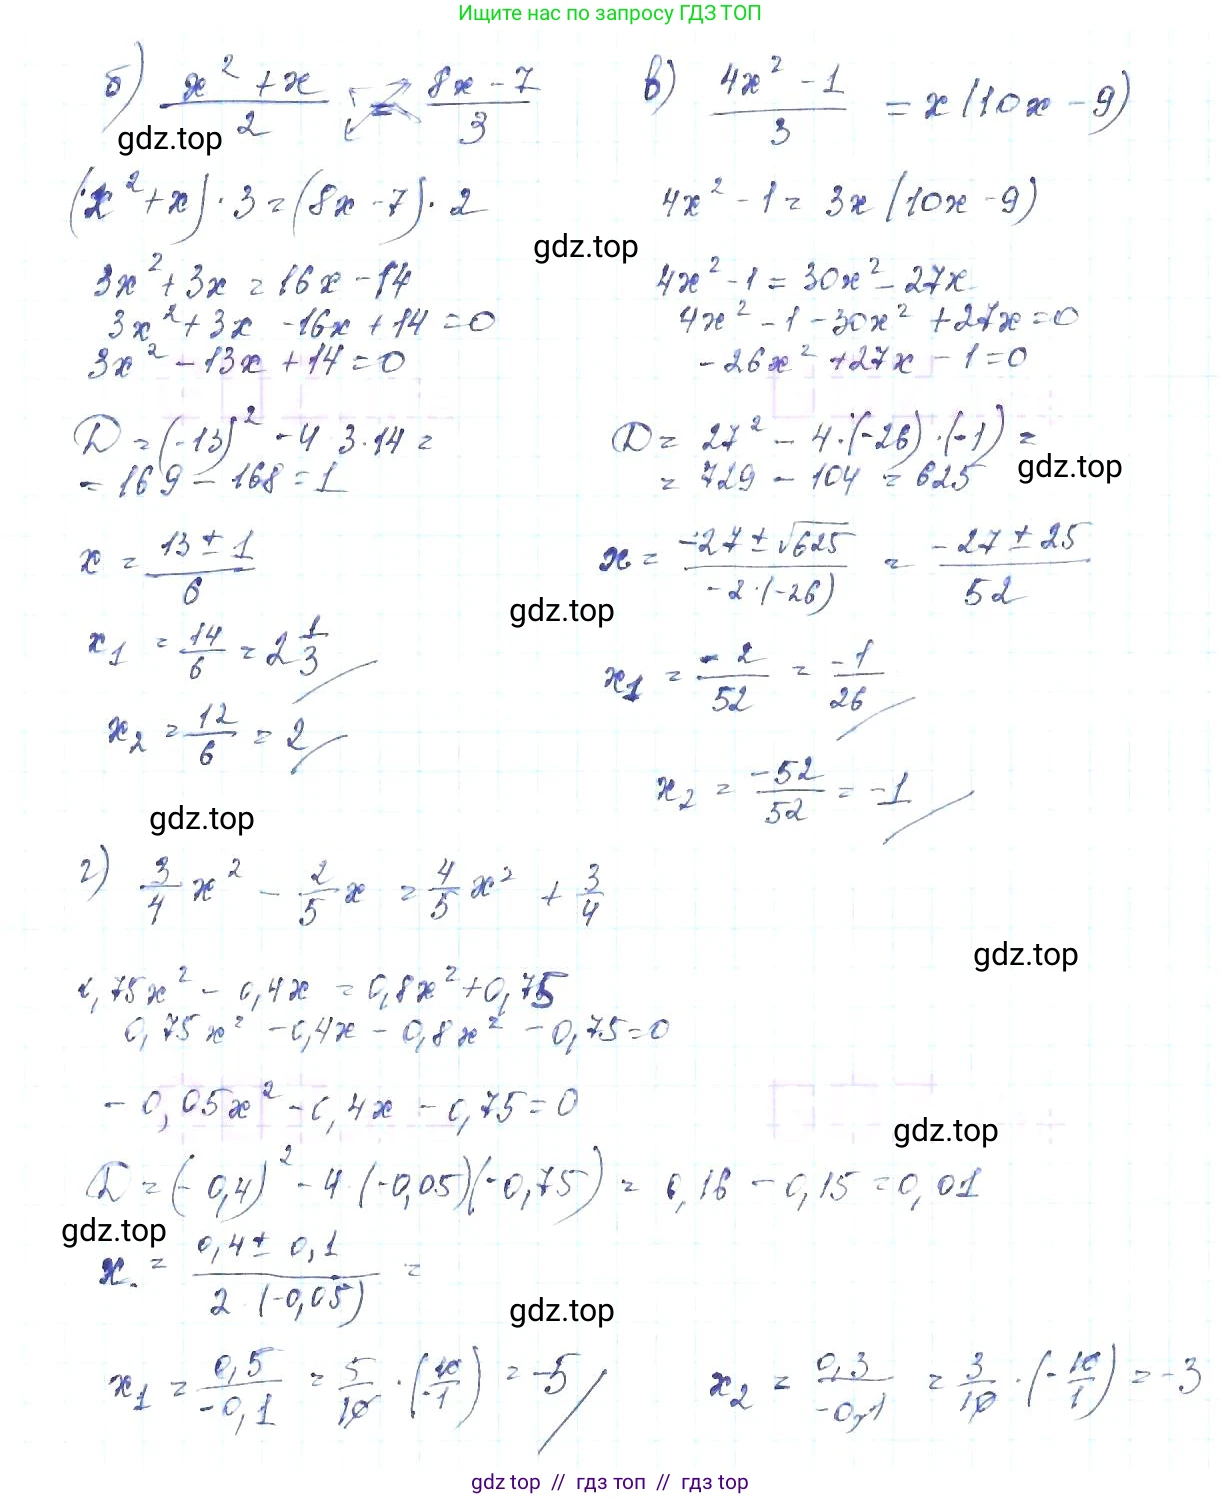 Ищите нас по запросу ГДЗ ТОП
б) (x² + x)/2 = (8x - 7)/3
gdz.top
(x² + x) · 3 = (8x - 7) · 2
3x² + 3x = 16x - 14
3x² + 3x - 16x + 14 = 0
3x² - 13x + 14 = 0
D = (-13)² - 4 · 3 · 14 =
= 169 - 168 = 1
x = (13 ± 1)/6
x₁ = 14/6 = 2 1/3
x₂ = 12/6 = 2
gdz.top
в) (4x² - 1)/3 = x(10x - 9)
4x² - 1 = 3x(10x - 9)
gdz.top
4x² - 1 = 30x² - 27x
4x² - 1 - 30x² + 27x = 0
-26x² + 27x - 1 = 0
D = 27² - 4 · (-26) · (-1) =
= 729 - 104 = 625
gdz.top
x = (-27 ± √625)/(-2 · (-26)) = (-27 ± 25)/52
gdz.top
x₁ = -2/52 = -1/26
x₂ = -52/52 = -1
г) 3/4 x² - 2/5 x = 4/5 x² + 3/4
gdz.top
0,75x² - 0,4x = 0,8x² + 0,75
0,75x² - 0,4x - 0,8x² - 0,75 = 0
-0,05x² - 0,4x - 0,75 = 0
gdz.top
D = (-0,4)² - 4 · (-0,05)(-0,75) = 0,16 - 0,15 = 0,01
gdz.top
x = (0,4 ± 0,1)/(2 · (-0,05)) =
gdz.top
x₁ = 0,5/-0,1 = 5/10 · (10/-1) = -5
x₂ = 0,3/-0,1 = 3/10 · (-10/1) = -3
gdz top // гдз топ // gdz top